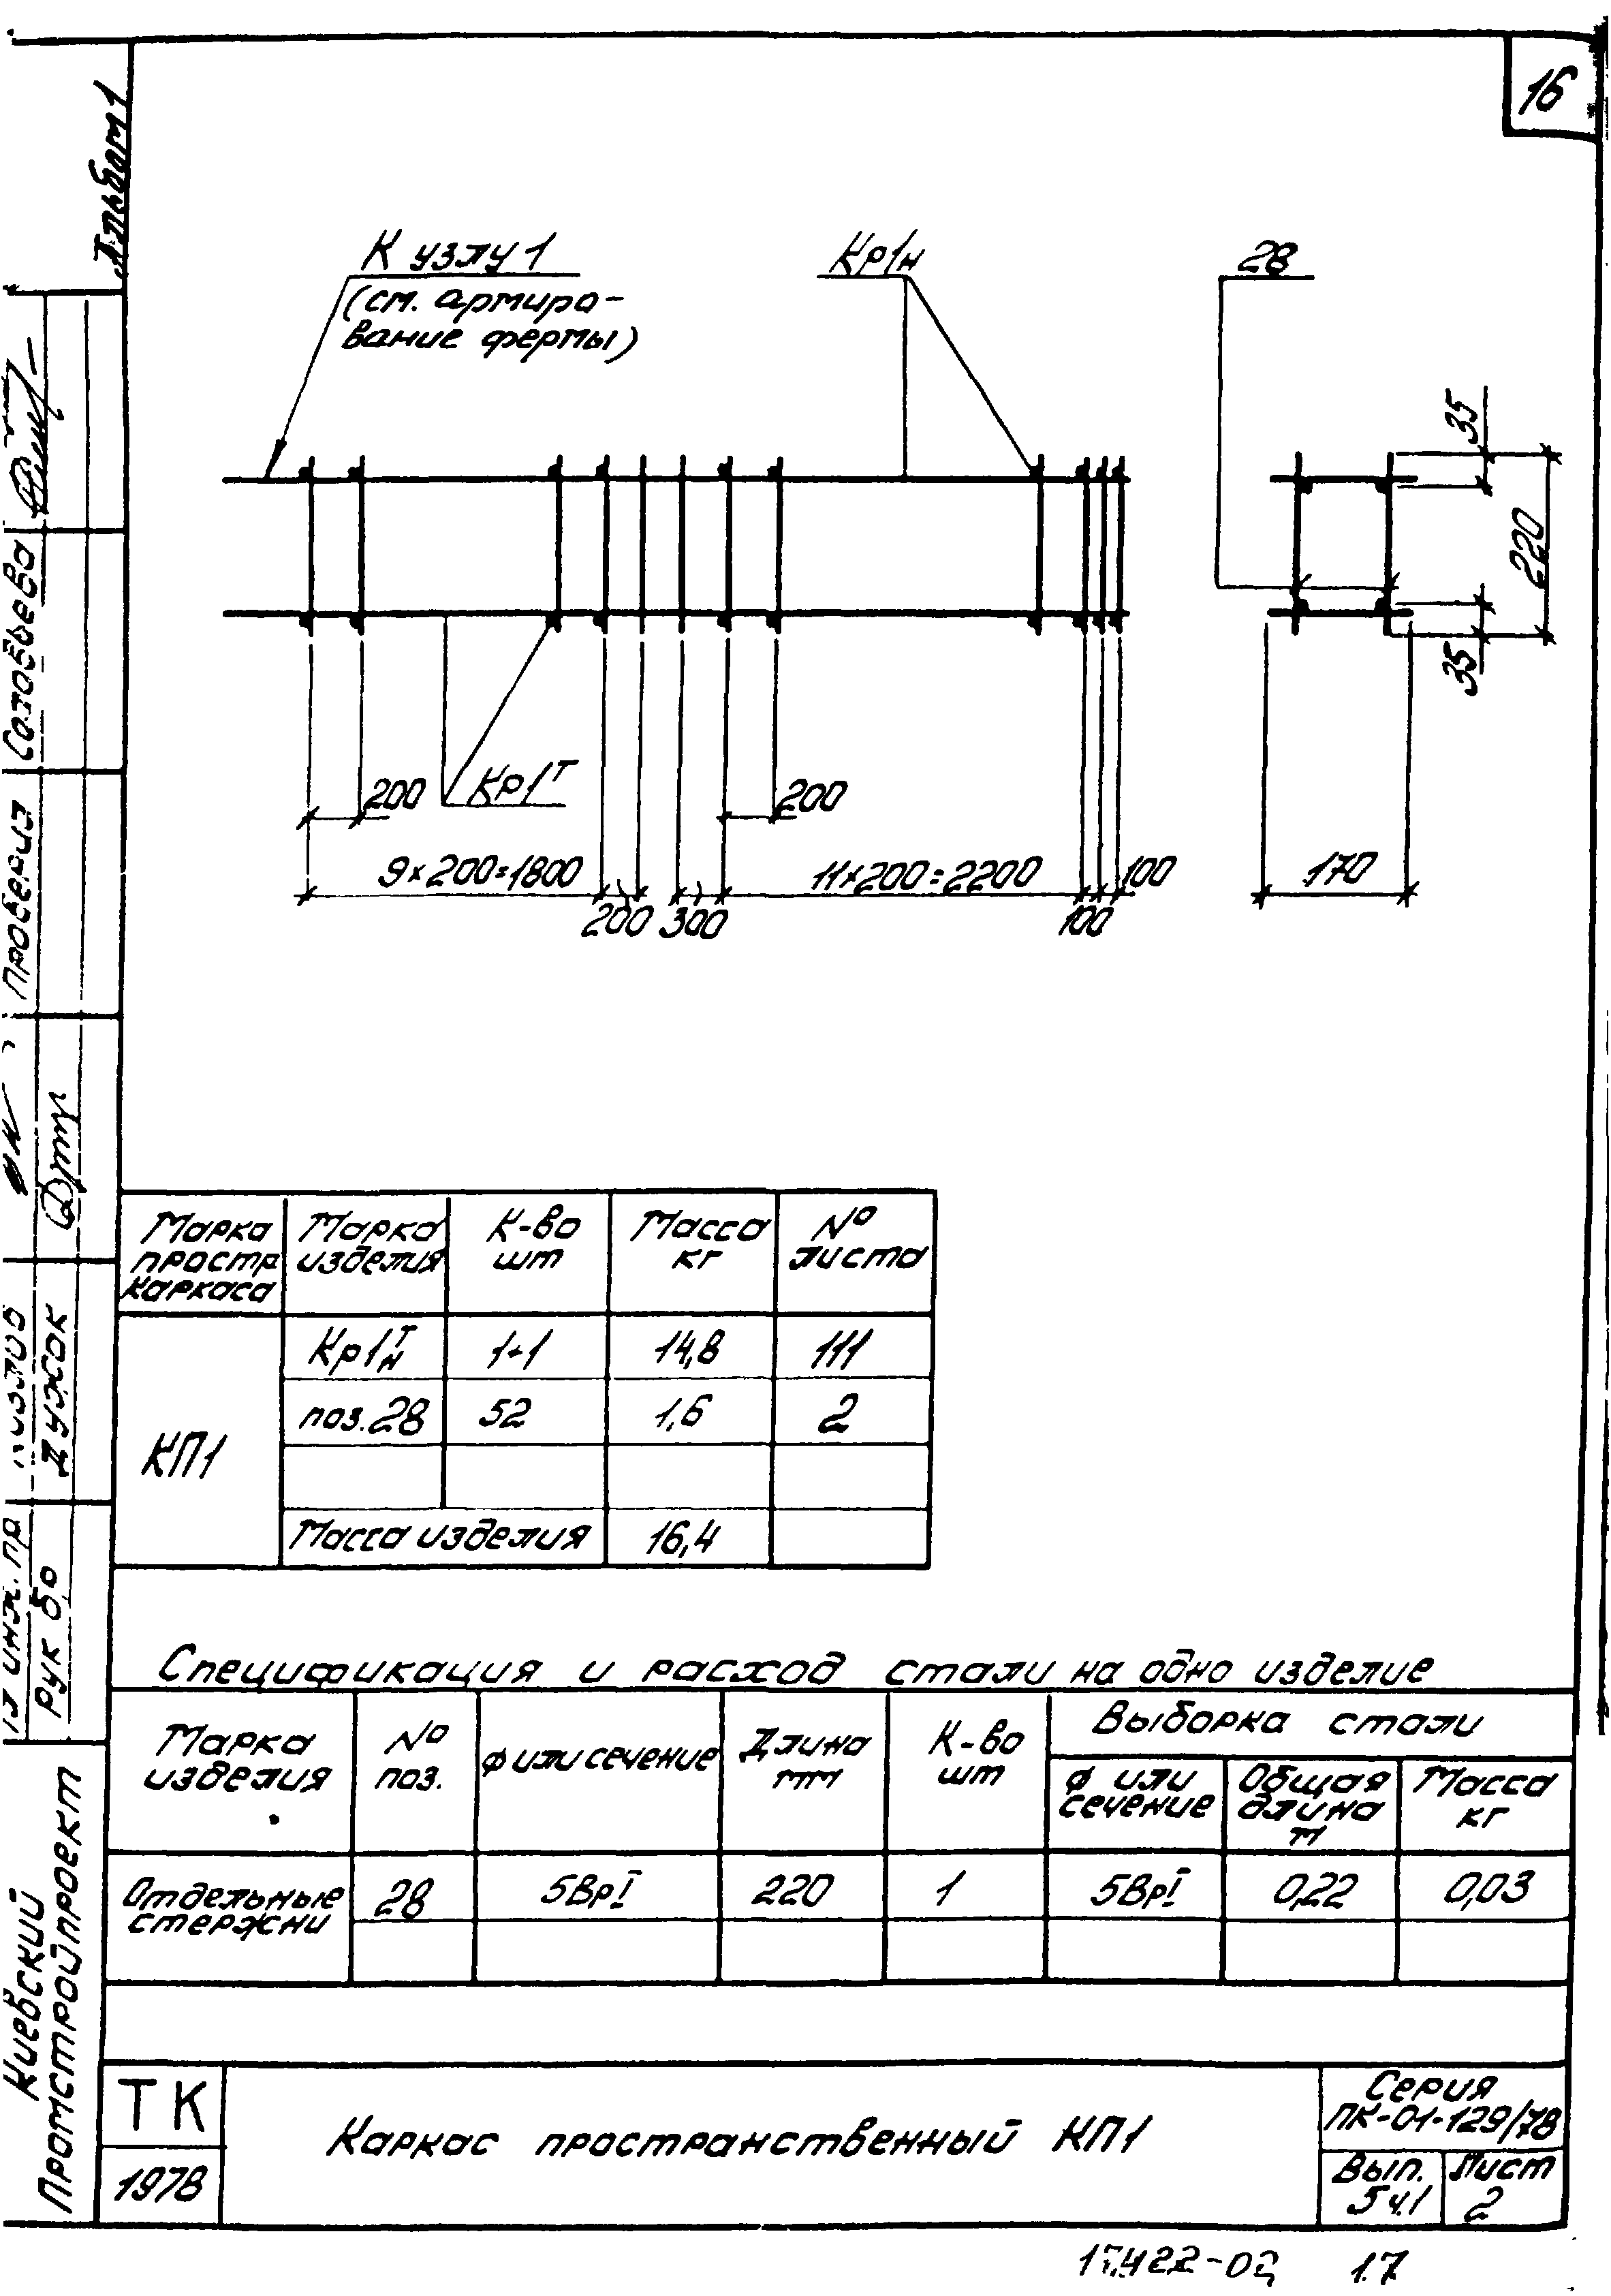 16
Альбом 1
К узлу 1
(см. армиро-
вание фермы)
Кр1н
28
35
220
35
200
Кр1т
200
9×200=1800
11×200=2200
100
170
200
300
100
Марка простр каркаса
Марка изделия
К-во шт
Масса кг
№ листа
КП1
Кр1т/н
1+1
14,8
111
поз.28
52
1,6
2
Масса изделия
16,4
Спецификация и расход стали на одно изделие
Марка изделия
№ поз.
ф или сечение
Длина мм
К-во шт
Выборка стали
ф или сечение
Общая длина м
Масса кг
Отдельные стержни
28
5ВрI
220
1
5ВрI
0,22
0,03
ТК
1978
Каркас пространственный КП1
Серия
ПК-01-129/78
Вып.
5 ч.1
Лист
2
Киевский
Промстройпроект
Рук бр
Дужок
Проверил
Соловьева
17